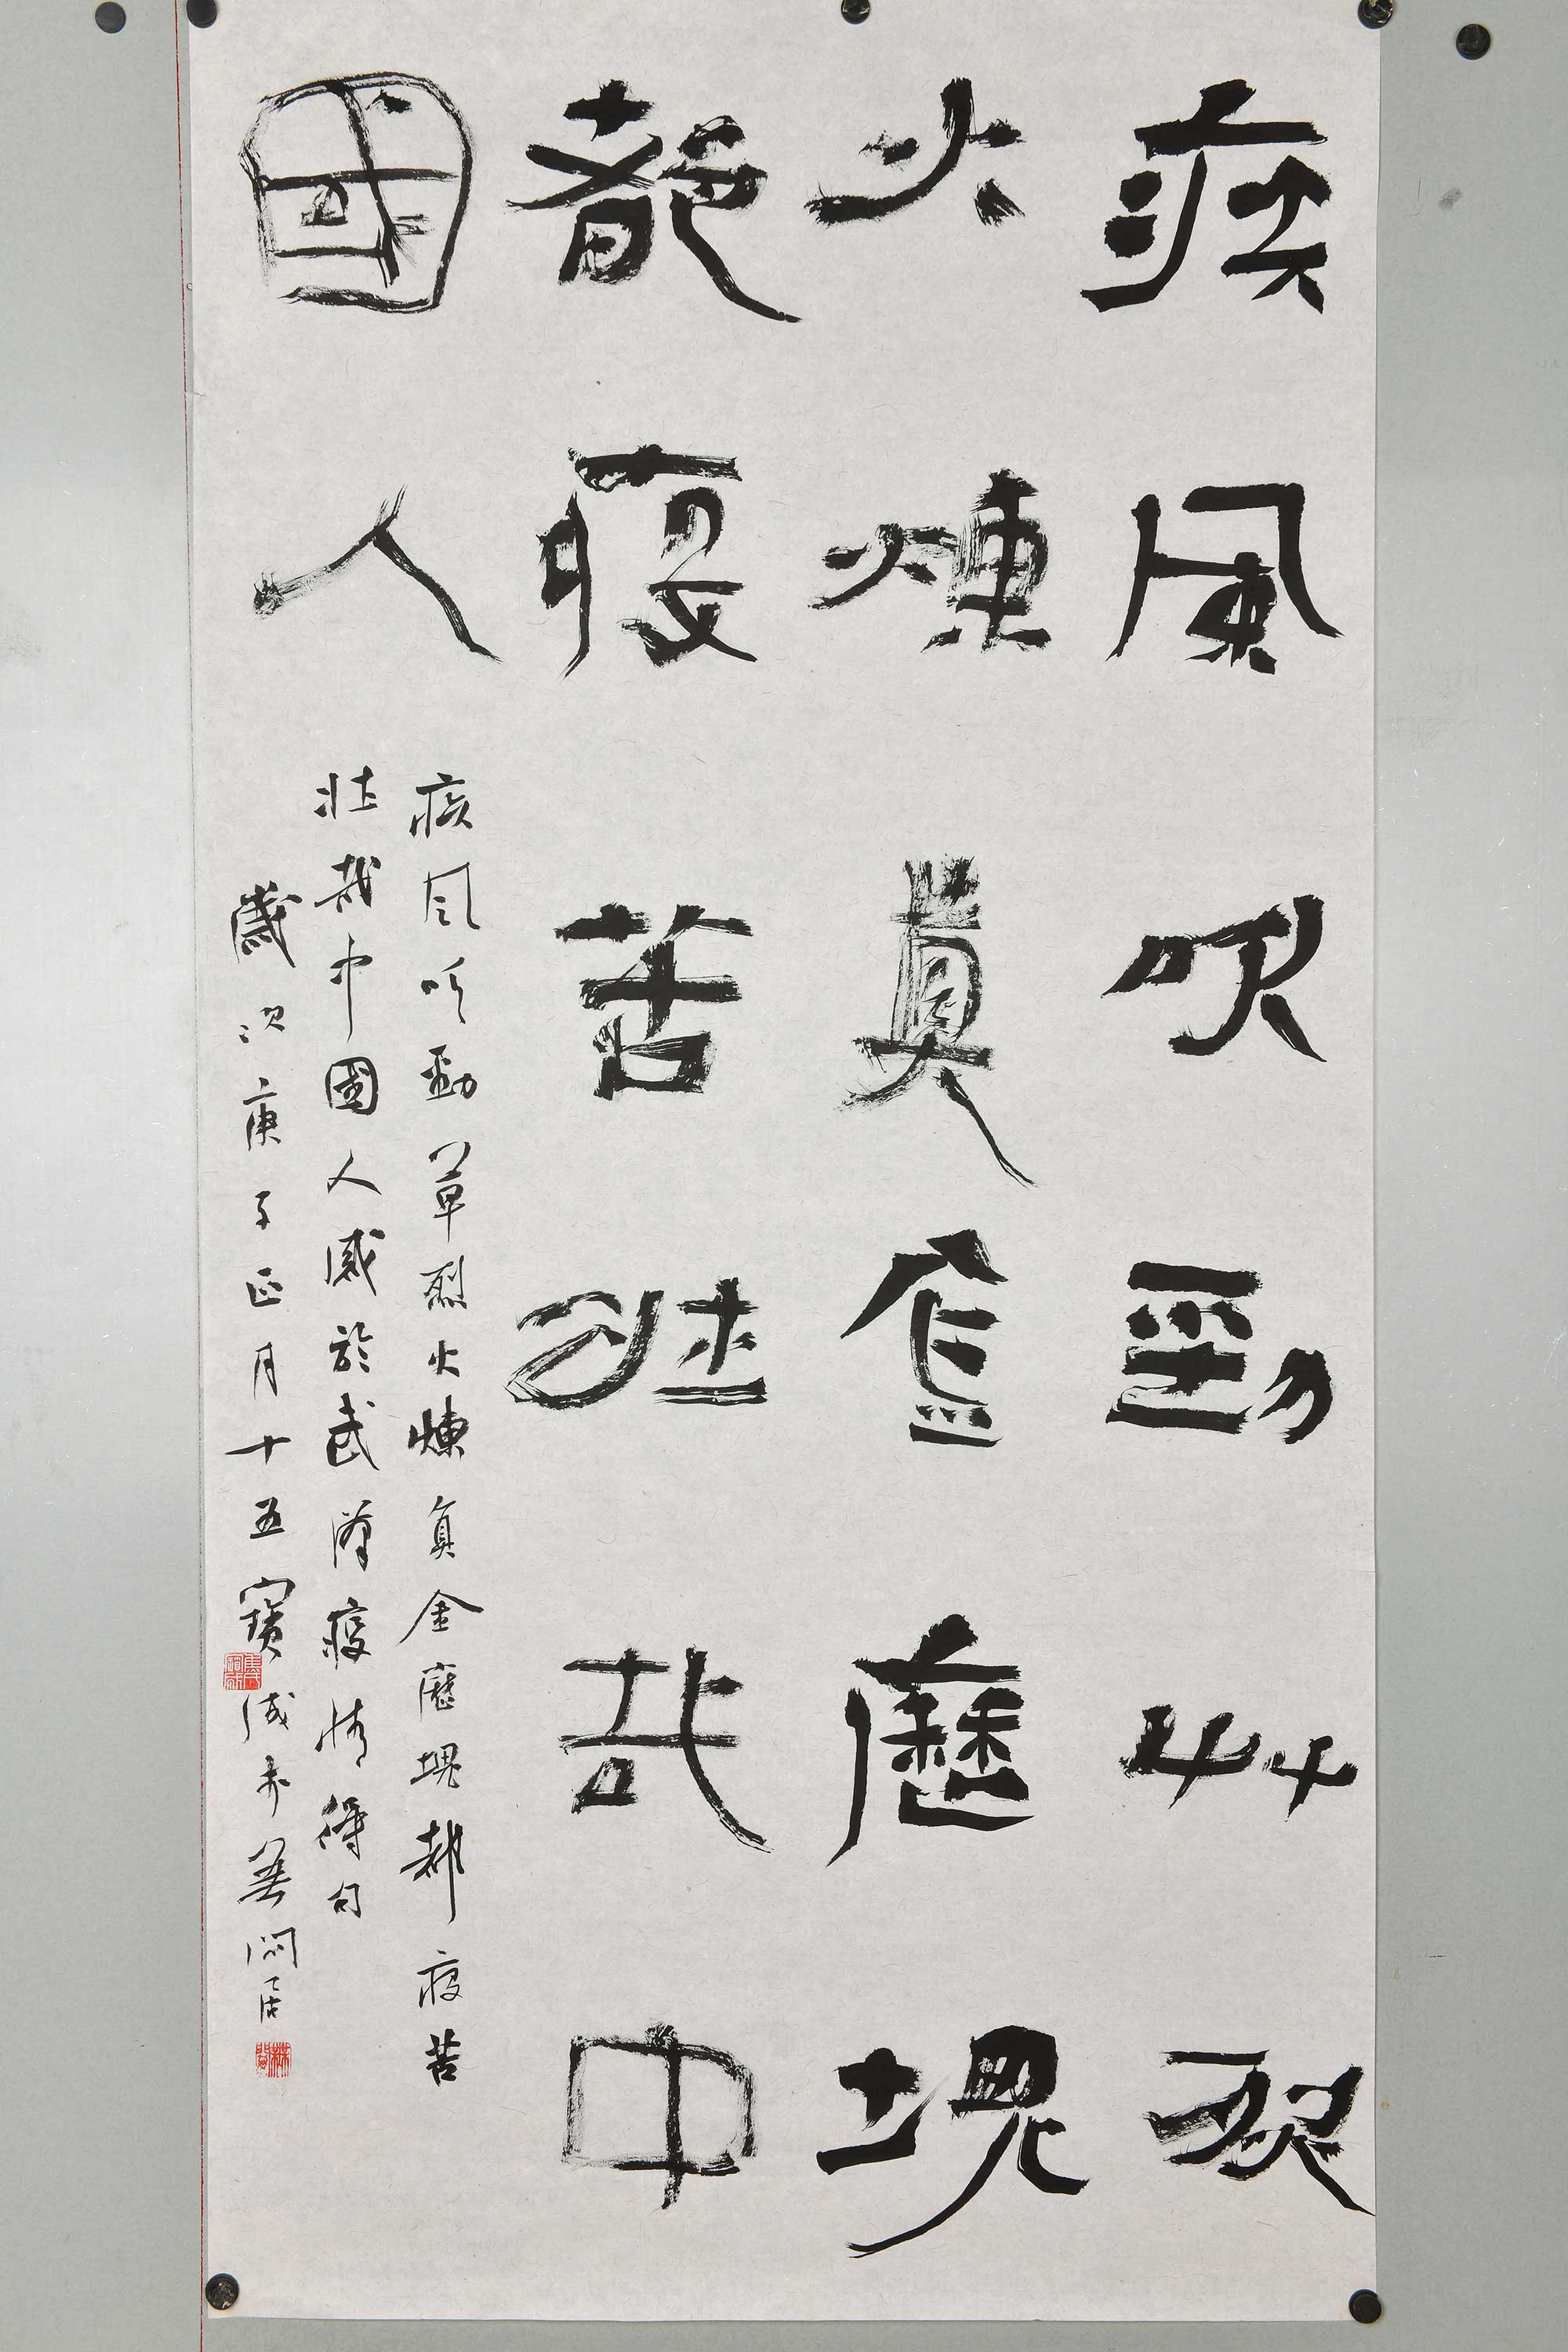 疾風吹勁艸烈
火煉真金歷塊
都疫苦壯哉中
國人
疾風吹勁草烈火煉真金歷塊都疫苦
壯哉中國人感於武漢疫情得句
歲次庚子正月十五寶成於無悶居